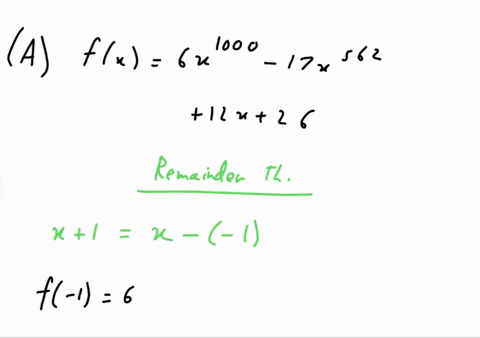 (A) f(x) = 6x^1000 - 17x^562
+12x + 26
Remainder Th.
x + 1 = x - (-1)
f(-1) = 6